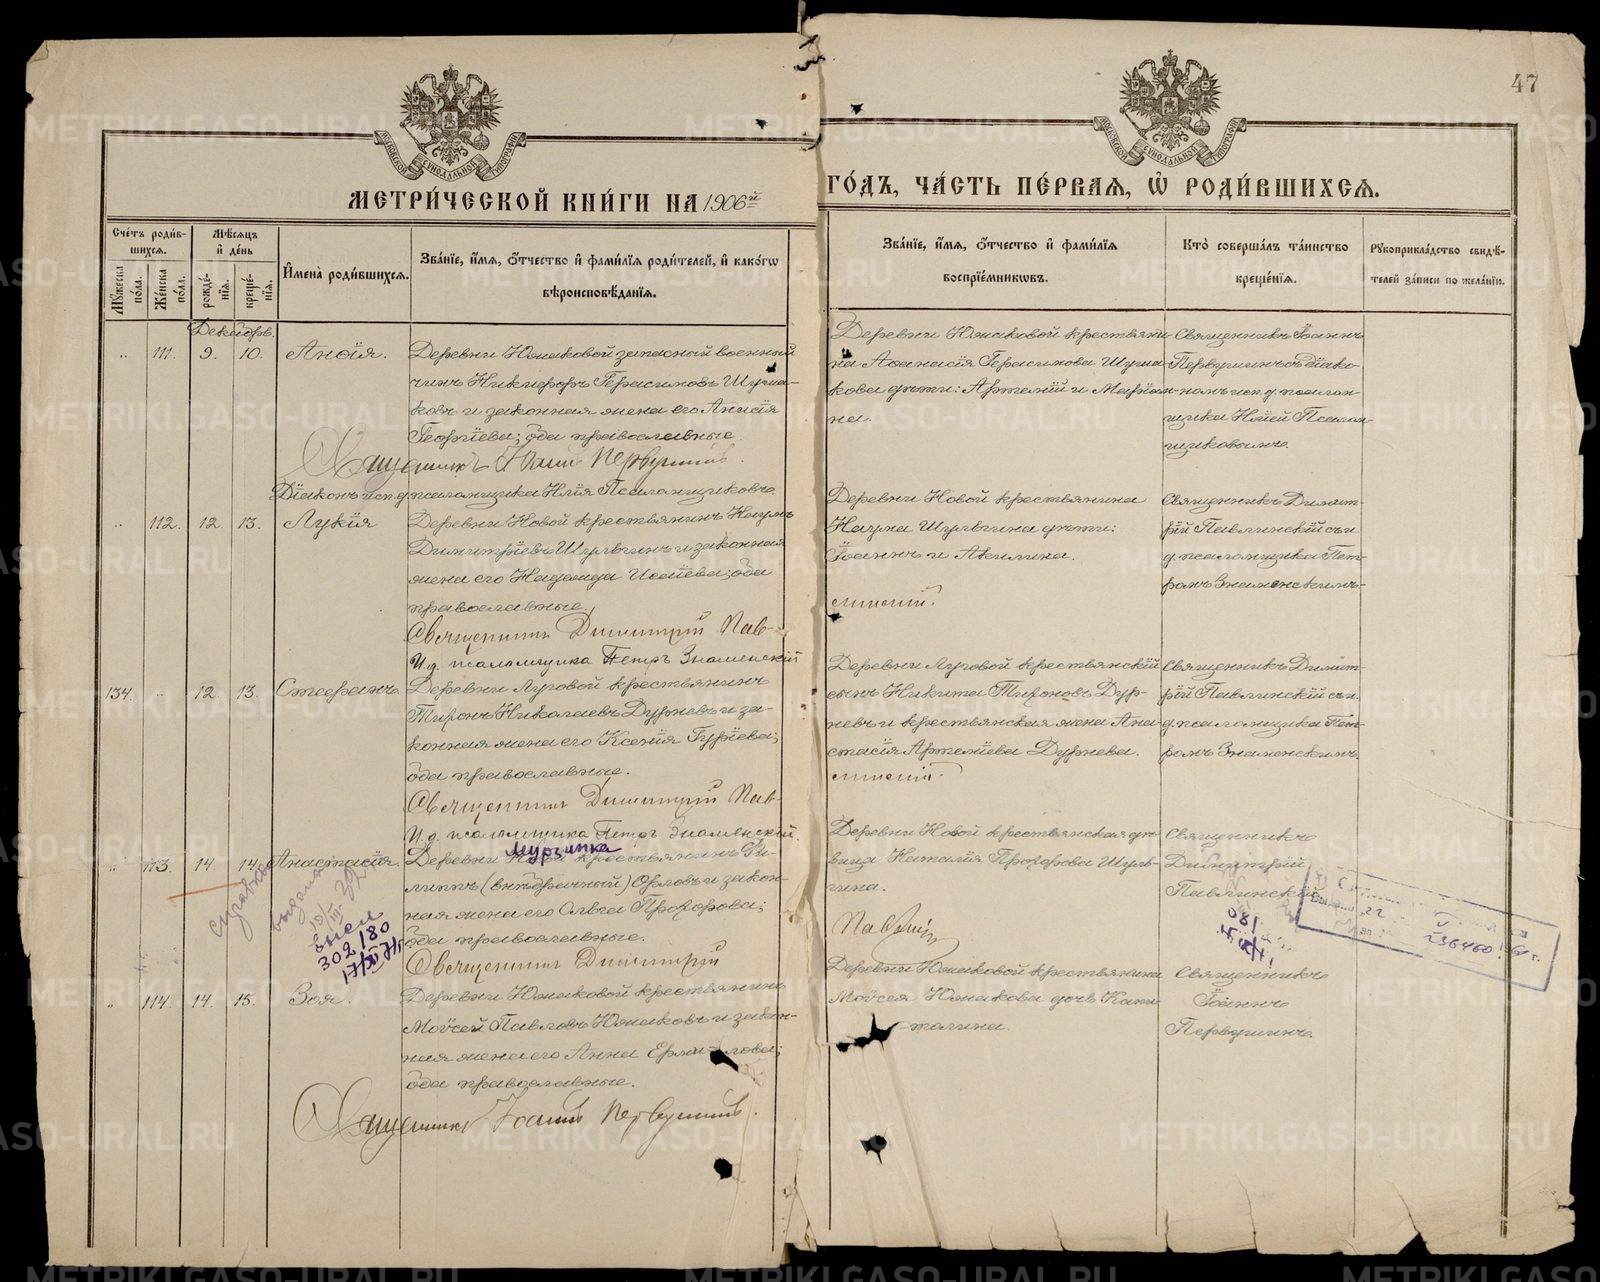 47
МЕТРИ́ЧЕСКОЙ КНИ́ГИ НА 1906й ГО́ДЪ, ЧА́СТЬ ПЕ́РВАЯ, Ѡ РОДИ́ВШИХСЯ.
Счётъ роди́вшихся.
Мѣ́сяцъ и де́нь
Имена̀ роди́вшихся.
Зва́нїе, и́мя, о́тчество и фами́лїя роди́телей, и како́гѡ
вѣроисповѣ́данїя.
Зва́нїе, и́мя, о́тчество и фами́лїя
воспрїе́мникѡвъ.
Кто̀ соверша́лъ та́инство
креще́нїя.
Рꙋкоприкла́дство свидѣ́-
телей за́писи по жела́нїю.
Мꙋ́жеска по́ла.
Же́нска по́ла.
рожде́-
нїя.
креще́-
нїя.
Декабрь.
„ 111. 9. 10. Анѳія.
Деревни Южаковой запасный военный
чинъ Никифоръ Герасимовъ Шума-
ковъ и законная жена его Анисія
Георгіева; оба православные.
Священникъ Іоаннъ Первушинъ.
Діаконъ исп. д. псаломщика Илія Псаломщиковъ.
Деревни Южаковой крестьяни-
на Аѳанасія Герасимова Шума-
кова дѣти: Артемій и Маріам-
на.
Священникъ Іоаннъ
Первушинъ съ діако-
номъ исп. д. псалом-
щика Иліей Псалом-
щиковымъ.
„ 112. 12. 13. Лукія
Деревни Новой крестьянинъ Наумъ
Димитріевъ Шульгинъ и законная
жена его Надежда Исаіева; оба
православные.
Священникъ Димитрій Пав-
И. д. псаломщика Петръ Знаменскій
Деревни Новой крестьянина
Наума Шульгина дѣти:
Іоаннъ и Акилина.
линскій.
Священникъ Димит-
рій Павлинскій съ и.
д. псаломщика Пет-
ромъ Знаменскимъ.
134. „ 12. 13. Стефанъ.
Деревни Луговой крестьянинъ
Тихонъ Николаевъ Дурневъ и за-
конная жена его Ксенія Гуріева;
оба православные.
Священникъ Димитрій Пав-
И. д. псаломщика Петръ Знаменскій.
Деревни Луговой крестьянскій
сынъ Никита Тихоновъ Дур-
невъ и крестьянская жена Ана-
стасія Артеміева Дурнева.
линскій.
Священникъ Димит-
рій Павлинскій съ и.
д. псаломщика Пет-
ромъ Знаменскимъ.
„ 113. 14. 14. Анастасія.
Мурзинка
Деревни Новой крестьянинъ Фи-
липпъ (внѣбрачный) Орловъ и закон-
ная жена его Ольга Прохорова;
оба православные.
Священникъ Димитрій
Деревни Новой крестьянская дѣ-
вица Наталія Прохорова Шуль-
гина.
Священникъ
Димитрій
Павлинскій
справка
выдана
302180
„ 114. 14. 15. Зоя.
Деревни Южаковой крестьянинъ
Моѵсей Павловъ Южаковъ и закон-
ная жена его Анна Ермилова;
оба православные.
Священникъ Іоаннъ Первушинъ.
Деревни Южаковой крестьянина
Моѵсея Южакова дочь Капи-
толина.
Священникъ
Іоаннъ
Первушинъ.
METRIKI.GASO-URAL.RU